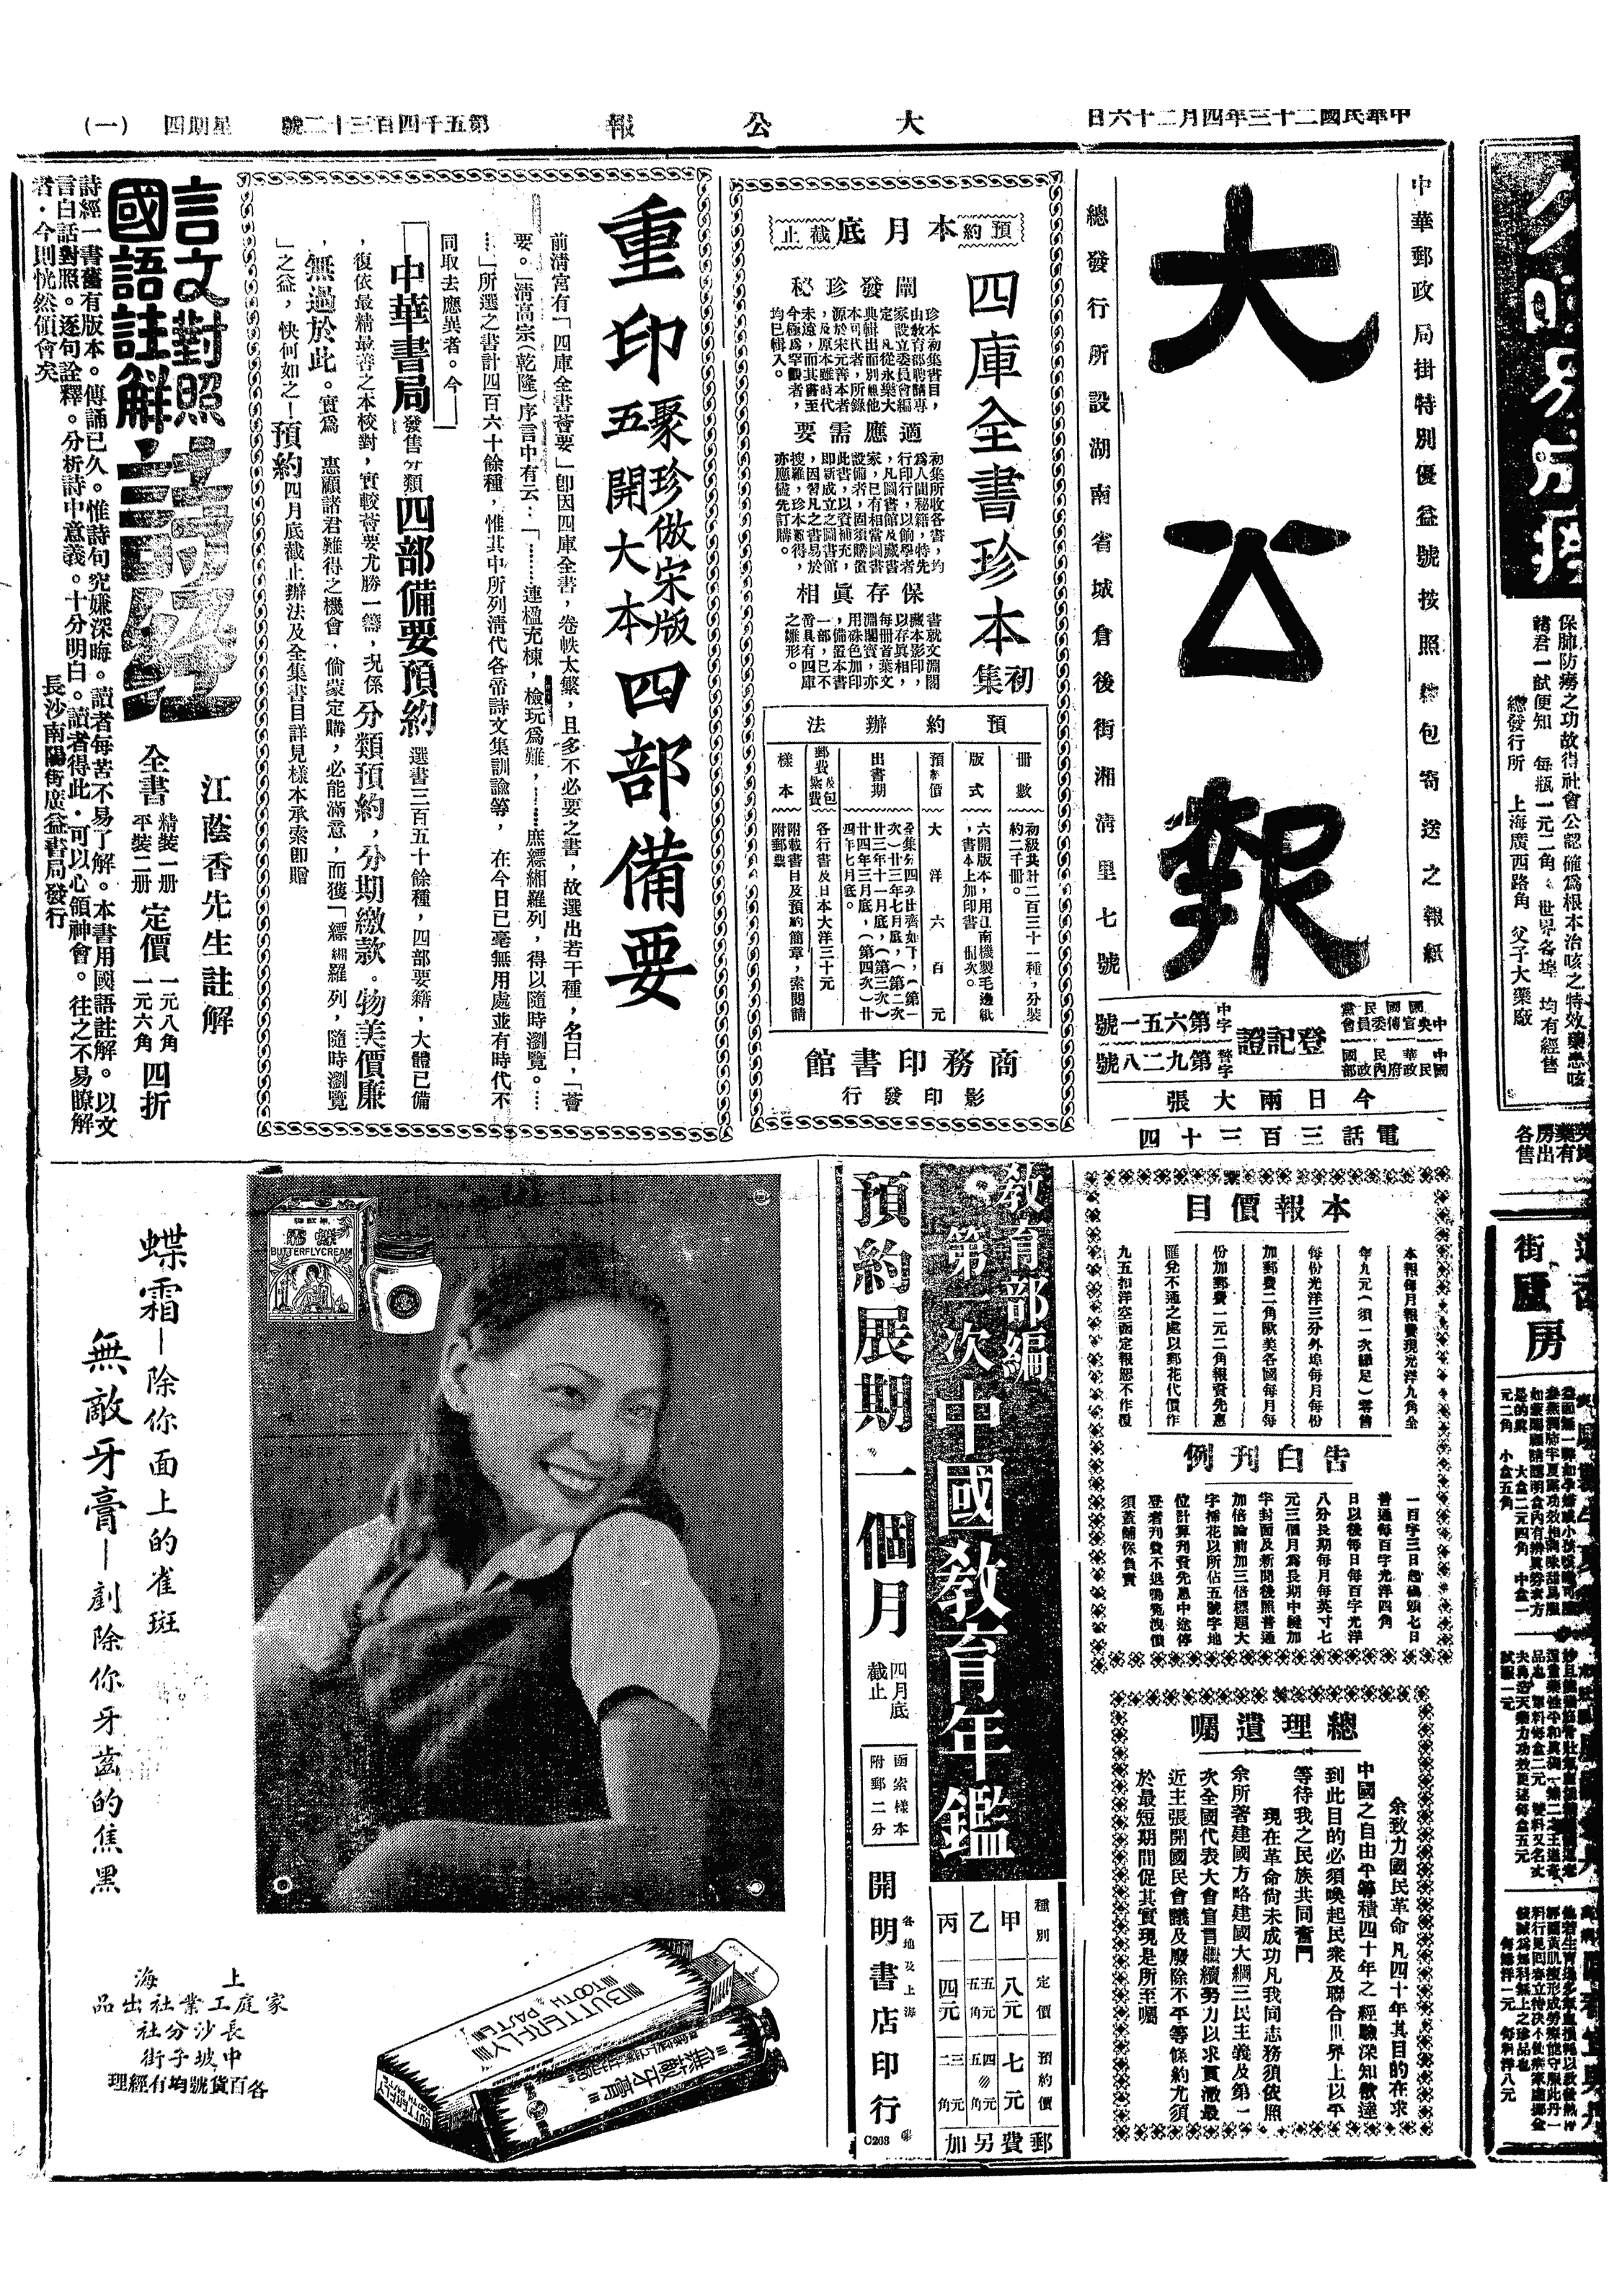 中華民國二十三年四月二十六日
大公報
第五千四百三十二號
星期四
（一）
中華郵政局掛特別優益號按照總包寄送之報紙
大公報
總發行所設湖南省城倉後街湘清里七號
中國國民黨
中央宣傳委員會
中華民國
國民政府內政部
登記證
中字第六五一號
警字第九二八號
今日兩大張
電話三百三十四
本報價目
本報每月報費現光洋九角全
年九元（須一次繳足）零售
每份光洋三分外埠每月每份
加郵費二角歐美各國每月每
份加郵費一元二角報費先惠
匯兌不通之處以郵花代價作
九五扣洋空函定報恕不作復
告白刊例
一百字三日起碼頭七日
普通每百字光洋四角
日以後每日每百字光洋
八分長期每月每英寸七
元三個月為長期中縫加
半封面及新聞後照普通
加倍論前加三倍標題大
字插花以所佔五號字地
位計算刊費先惠中途停
登者刊費不退鳴冤洩憤
須蓋舖保負責
總理遺囑
余致力國民革命凡四十年其目的在求
中國之自由平等積四十年之經驗深知欲達
到此目的必須喚起民衆及聯合世界上以平
等待我之民族共同奮鬥
現在革命尚未成功凡我同志務須依照
余所著建國方略建國大綱三民主義及第一
次全國代表大會宣言繼續努力以求貫澈最
近主張開國民會議及廢除不平等條約尤須
於最短期間促其實現是所至囑
預約本月底截止
四庫全書珍本
初集
闡發珍秘
珍本初集書目，
由敎育部聘請專
家設立委員會編
定，凡從永樂大
典輯出而別無他
本可代者，所錄
源於宋元善本者
，及原本雖時代
未遠，而其書至
今極爲罕覯者，
均已輯入。
適應需要
初集所收各書，均
爲人間秘籍，特先
行印行，以餉學者
，凡圖書館及藏書
家，已有相當圖書
設備者，固須購置
此書，以資補充，
即新成立之圖書館
，因習凡之書易於
搜羅，珍本難得，
亦應儘先訂購。
保存眞相
書就文淵閣
藏本影印，
以存眞相，
每冊首葉文
淵閣寶，亦
用硃色加印
，備置本書
一部，已不
啻具有四庫
之雛形。
預約辦法
冊數
初級共計二百三十一種，分裝
約二千冊。
版式
六開版本，用江南機製毛邊紙
，書本上加印書　個次。
預約價
大洋六百元
出書期
全集分四次出齊如下，（第一
次）廿三年七月底，（第二次
廿三年十一月底，（第三次）
廿四年三月底，（第四次）廿
四年七月底。
郵費及包紮費
各行省及日本大洋三十元
樣本
附載書目及預約簡章，索閱請
附郵票
商務印書館
影印發行
重印
聚珍倣宋版
五開大本
四部備要
前清宮有「四庫全書薈要」卽因四庫全書，卷帙太繁，且多不必要之書，故選出若干種，名曰，「薈
要。」清高宗（乾隆）序言中有云：「……連楹充棟，檢玩爲難，……庶縹緗羅列，得以隨時瀏覽。…
…」所選之書計四百六十餘種，惟其中所列清代各帝詩文集訓諭等，在今日已毫無用處並有時代不
同取去應異者。今
中華書局發售分類四部備要預約選書三百五十餘種，四部要籍，大體已備
，復依最精最善之本校對，實較薈要尤勝一籌，况係分類預約，分期繳款。物美價廉
，無過於此。實爲　惠顧諸君難得之機會，倘蒙定購，必能滿意，而獲「縹緗羅列，隨時瀏覽
」之益，快何如之！預約四月底截止辦法及全集書目詳見樣本承索即贈
言文對照
國語註解
詩經
江蔭香先生註解
全書
精裝一册
平裝二册
定價
一元八角
一元六角
四折
詩經一書舊有版本。傳誦已久。惟詩句究嫌深晦。讀者每苦不易了解。本書用國語註解。以文
言白話對照。逐句詮釋。分析詩中意義。十分明白。讀者得此，可以心領神會。往之不易瞭解
者，今則恍然領會矣
長沙南陽街廣益書局發行
敎育部編
第一次中國敎育年鑑
預約展期一個月
四月底截止
函索樣本
附郵二分
各地及上海
開明書店印行
C268
種別
定價
預約價
甲
八元
七元
乙
五元五角
四元五角
丙
四元
三元二角
郵費另加
BUTTERFLYCREAM
蝶霜—除你面上的雀斑
無敵牙膏—剷除你牙齒的焦黑
BUTTERFLY
TOOTH PASTE
無敵牙膏
上海
家庭工業社出品
長沙分社
中坡子街
各百貨號均有經理
保肺防癆之功故得社會公認確爲根本治咳之特效藥患咳
諸君一試便知　每瓶一元二角　世界各埠　均有經售
總發行所　上海廣西路角　父子大藥廠